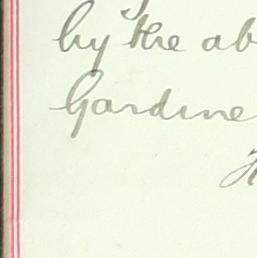 by the ab
Gardine